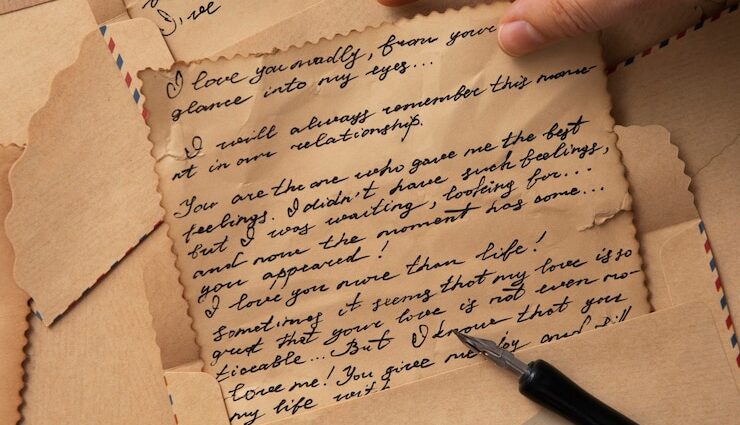 I've
I love you madly, from your
glance into my eyes...
I will always remember this mome-
nt in our relationship.
You are the one who gave me the best
feelings. I didn't have such feelings,
but I was waiting, looking for...
and none the moment has come...
you appeared!
I love you more than life!
Sometimes it seems that my love is so
great that your love is not even no-
ticeable... But I know that you
love me! You give me joy and fill
my life with